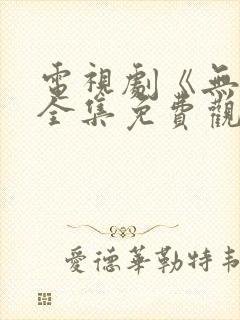 電視劇《無
全集免費觀
愛德華勒特韋